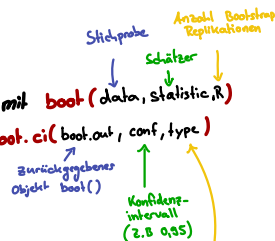 Anzahl Bootstrap
Replikationen
Stichprobe
Schätzer
mit boot(data, statistic, R)
oot.ci(boot.out, conf, type)
zurückgegebenes
Objekt boot()
Konfidenz-
intervall
(z.B 0,95)